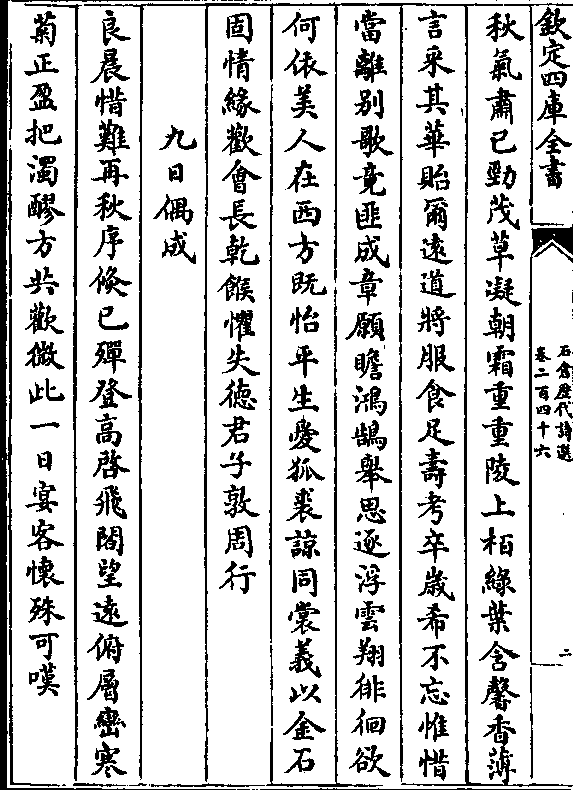 欽定四庫全書
石倉歷代詩選
卷二百四十六
二
秋氣肅已勁茂草凝朝霜重重陵上栢綠葉含馨香薄
言采其華貽爾遠道將服食足壽考卒歲希不忘惟惜
當離别歌竟匪成章願瞻鴻鵠舉思逐浮雲翔徘徊欲
何依美人在西方既怡平生愛狐裘諒同裳義以金石
固情緣歡會長乾餱懼失德君子敦周行
九日偶成
良晨惜難再秋序倐已殫登高啓飛閣望遠俯層巒寒
菊正盈把濁醪方共歡微此一日宴客懷殊可嘆